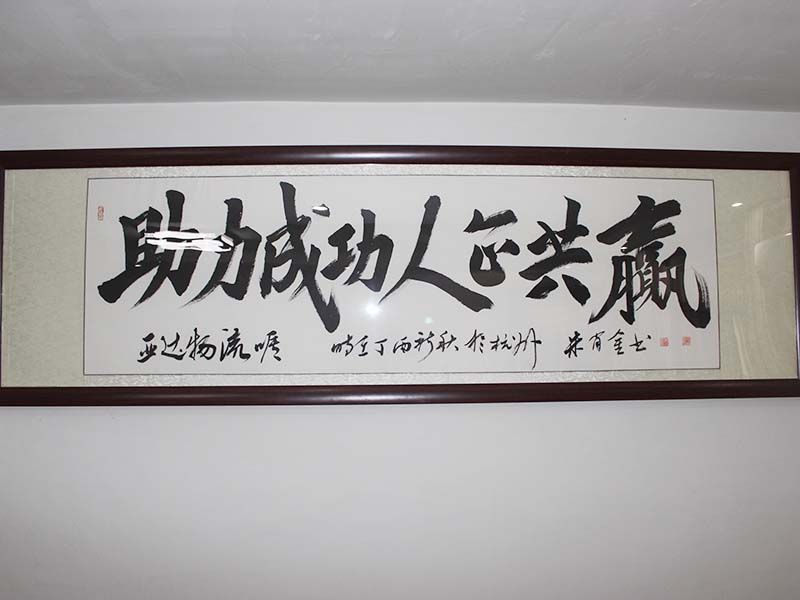 助力成功人企共赢
亚达物流 时在丁酉新秋于杭州 朱首金书